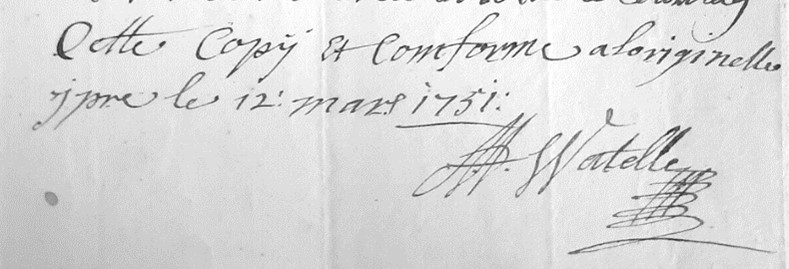 Cette Copÿ Et Comforme aloriginelle
jpre le 12: mars 1751:
Watelle